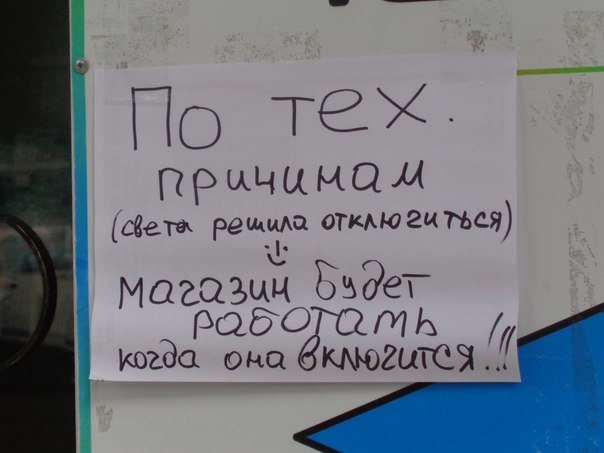 По тех.
причинам
(света решила отключиться)
:)
магазин будет
работать
когда она включится!!!